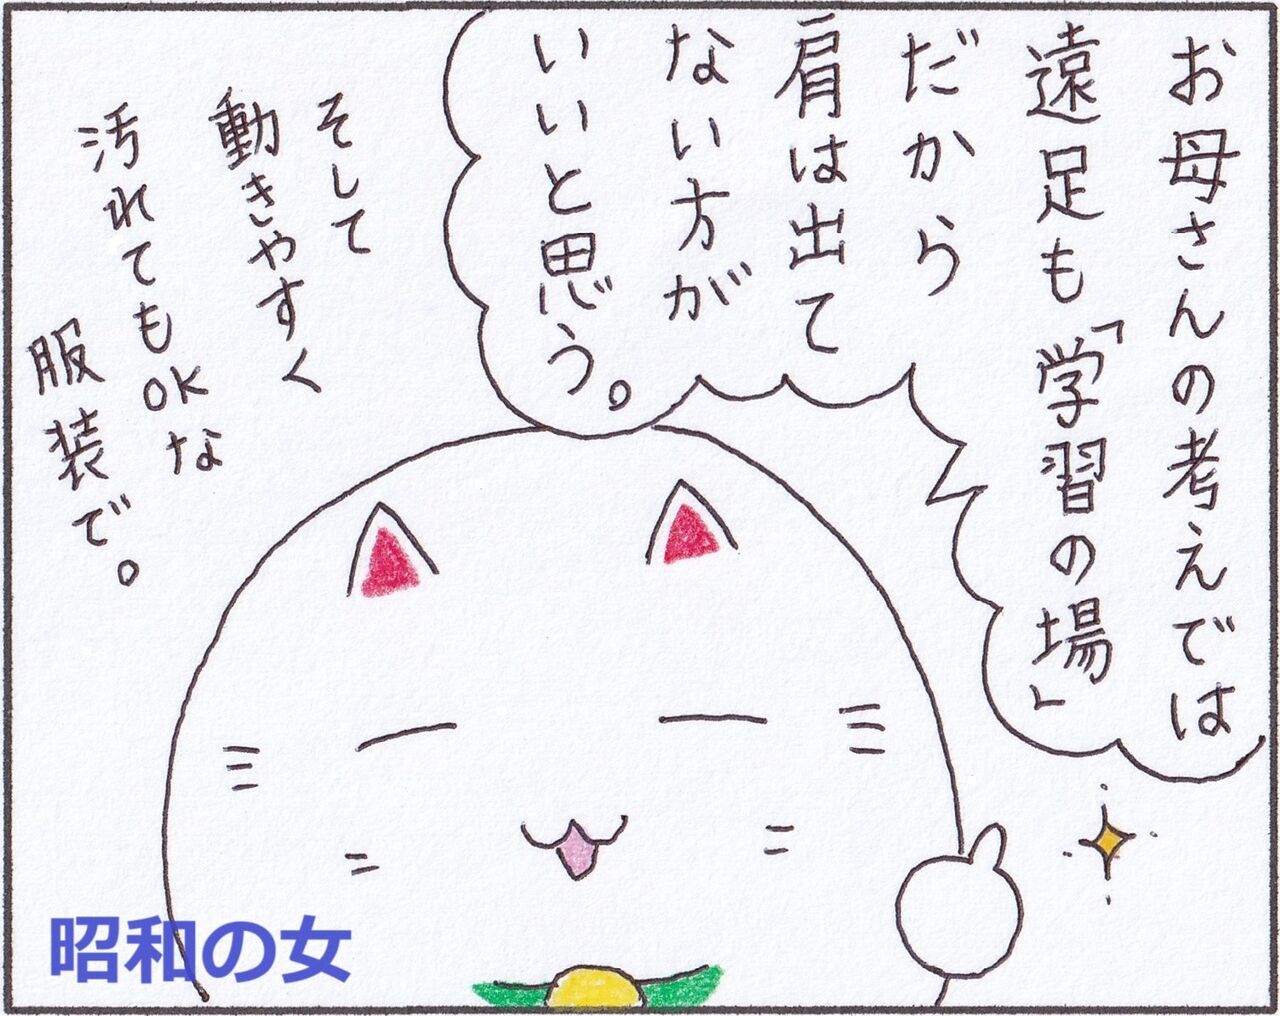 お母さんの考えでは
遠足も「学習の場」
だから
肩は出て
ない方が
いいと思う。
そして
動きやすく
汚れてもOKな
服装で。
昭和の女